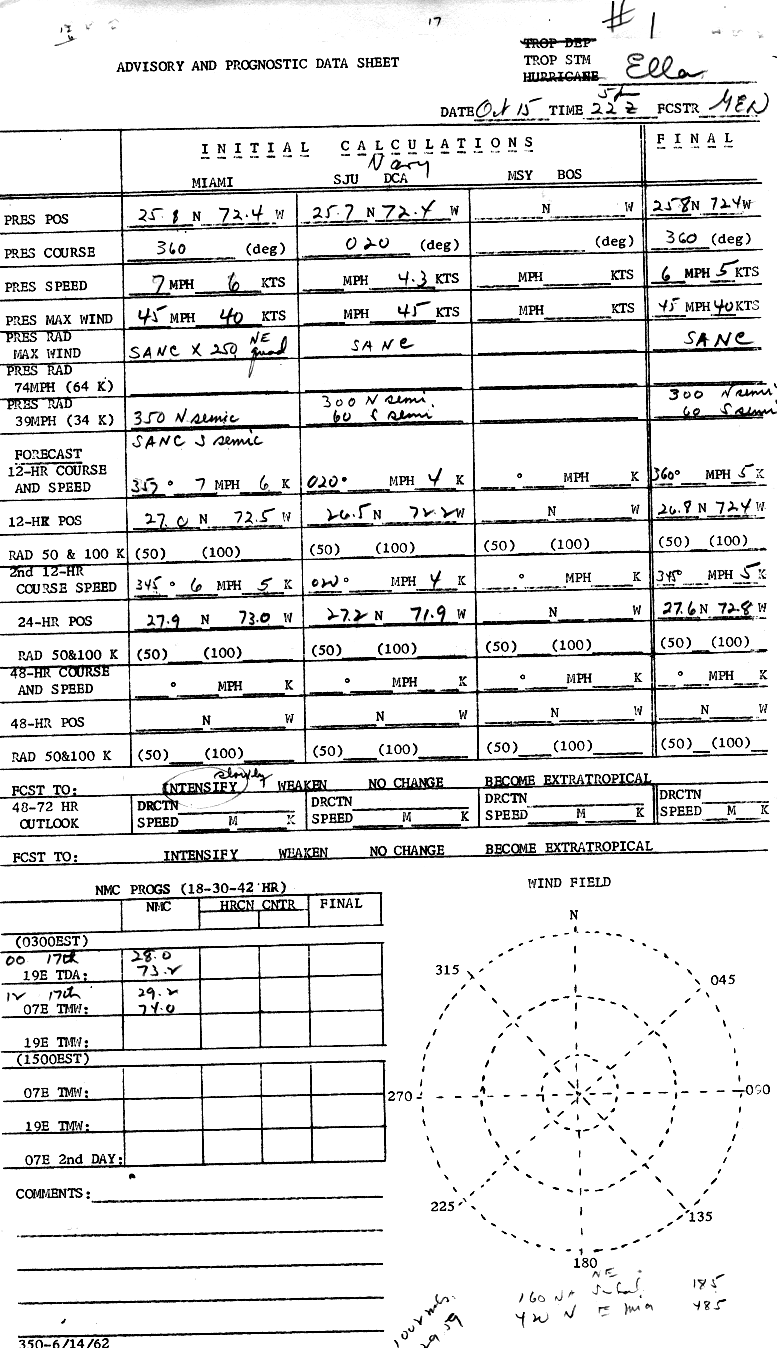 17
# 1
ADVISORY AND PROGNOSTIC DATA SHEET
TROP DEP
TROP STM Ella
HURRICANE
5 PM
DATE Oct 15 TIME 22 Z FCSTR
INITIAL CALCULATIONS FINAL
Navy
MIAMI SJU DCA MSY BOS
PRES POS 25.8 N 72.4 W 25.7 N 72.4 W N W 258N 724W
PRES COURSE 360 (deg) 020 (deg) (deg) 360 (deg)
PRES SPEED 7 MPH 6 KTS MPH 4.3 KTS MPH KTS 6 MPH 5 KTS
PRES MAX WIND 45 MPH 40 KTS MPH 45 KTS MPH KTS 45 MPH 40 KTS
PRES RAD
MAX WIND SANC X 250 NE quad SANC SANC
PRES RAD
74MPH (64 K)
PRES RAD 300 N semi. 300 N semi
39MPH (34 K) 350 N semic 60 S semi 60 S semi
SANC S semic
FORECAST
12-HR COURSE
AND SPEED 357° 7 MPH 6 K 020° MPH 4 K ° MPH K 360° MPH 5 K
12-HR POS 27.0 N 72.5 W 26.5 N 72.2 W N W 26.8 N 724 W
RAD 50 & 100 K (50) (100) (50) (100) (50) (100) (50) (100)
2nd 12-HR
COURSE SPEED 345° 6 MPH 5 K 020° MPH 4 K ° MPH K 345° MPH 5 K
24-HR POS 27.9 N 73.0 W 27.2 N 71.9 W N W 27.6 N 72.8 W
RAD 50&100 K (50) (100) (50) (100) (50) (100) (50) (100)
48-HR COURSE
AND SPEED ° MPH K ° MPH K ° MPH K ° MPH K
48-HR POS N W N W N W N W
RAD 50&100 K (50) (100) (50) (100) (50) (100) (50) (100)
slowly
FCST TO: INTENSIFY WEAKEN NO CHANGE BECOME EXTRATROPICAL
48-72 HR DRCTN DRCTN DRCTN DRCTN
OUTLOOK SPEED M K SPEED M K SPEED M K SPEED M K
FCST TO: INTENSIFY WEAKEN NO CHANGE BECOME EXTRATROPICAL
NMC PROGS (18-30-42 HR)
NMC HRCN CNTR FINAL
(0300EST)
00 17th 28.0
19E TDA: 73.2
12 17th 29.2
07E TMW: 74.0
19E TMW:
(1500EST)
07E TMW:
19E TMW:
07E 2nd DAY:
COMMENTS:
WIND FIELD
N
315 045
270 090
225 135
180
NE
160 185
420 N E mia 485
1002 mbs.
29 59
350-6/14/62